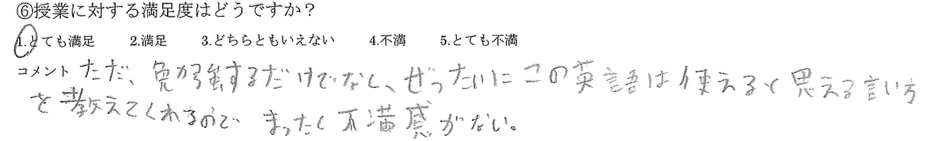 ⑥授業に対する満足度はどうですか？
1.とても満足 2.満足 3.どちらともいえない 4.不満 5.とても不満
コメント ただ、勉強するだけでなく、ぜったいにこの英語は使えると思える言い方
を教えてくれるので まったく不満感がない。